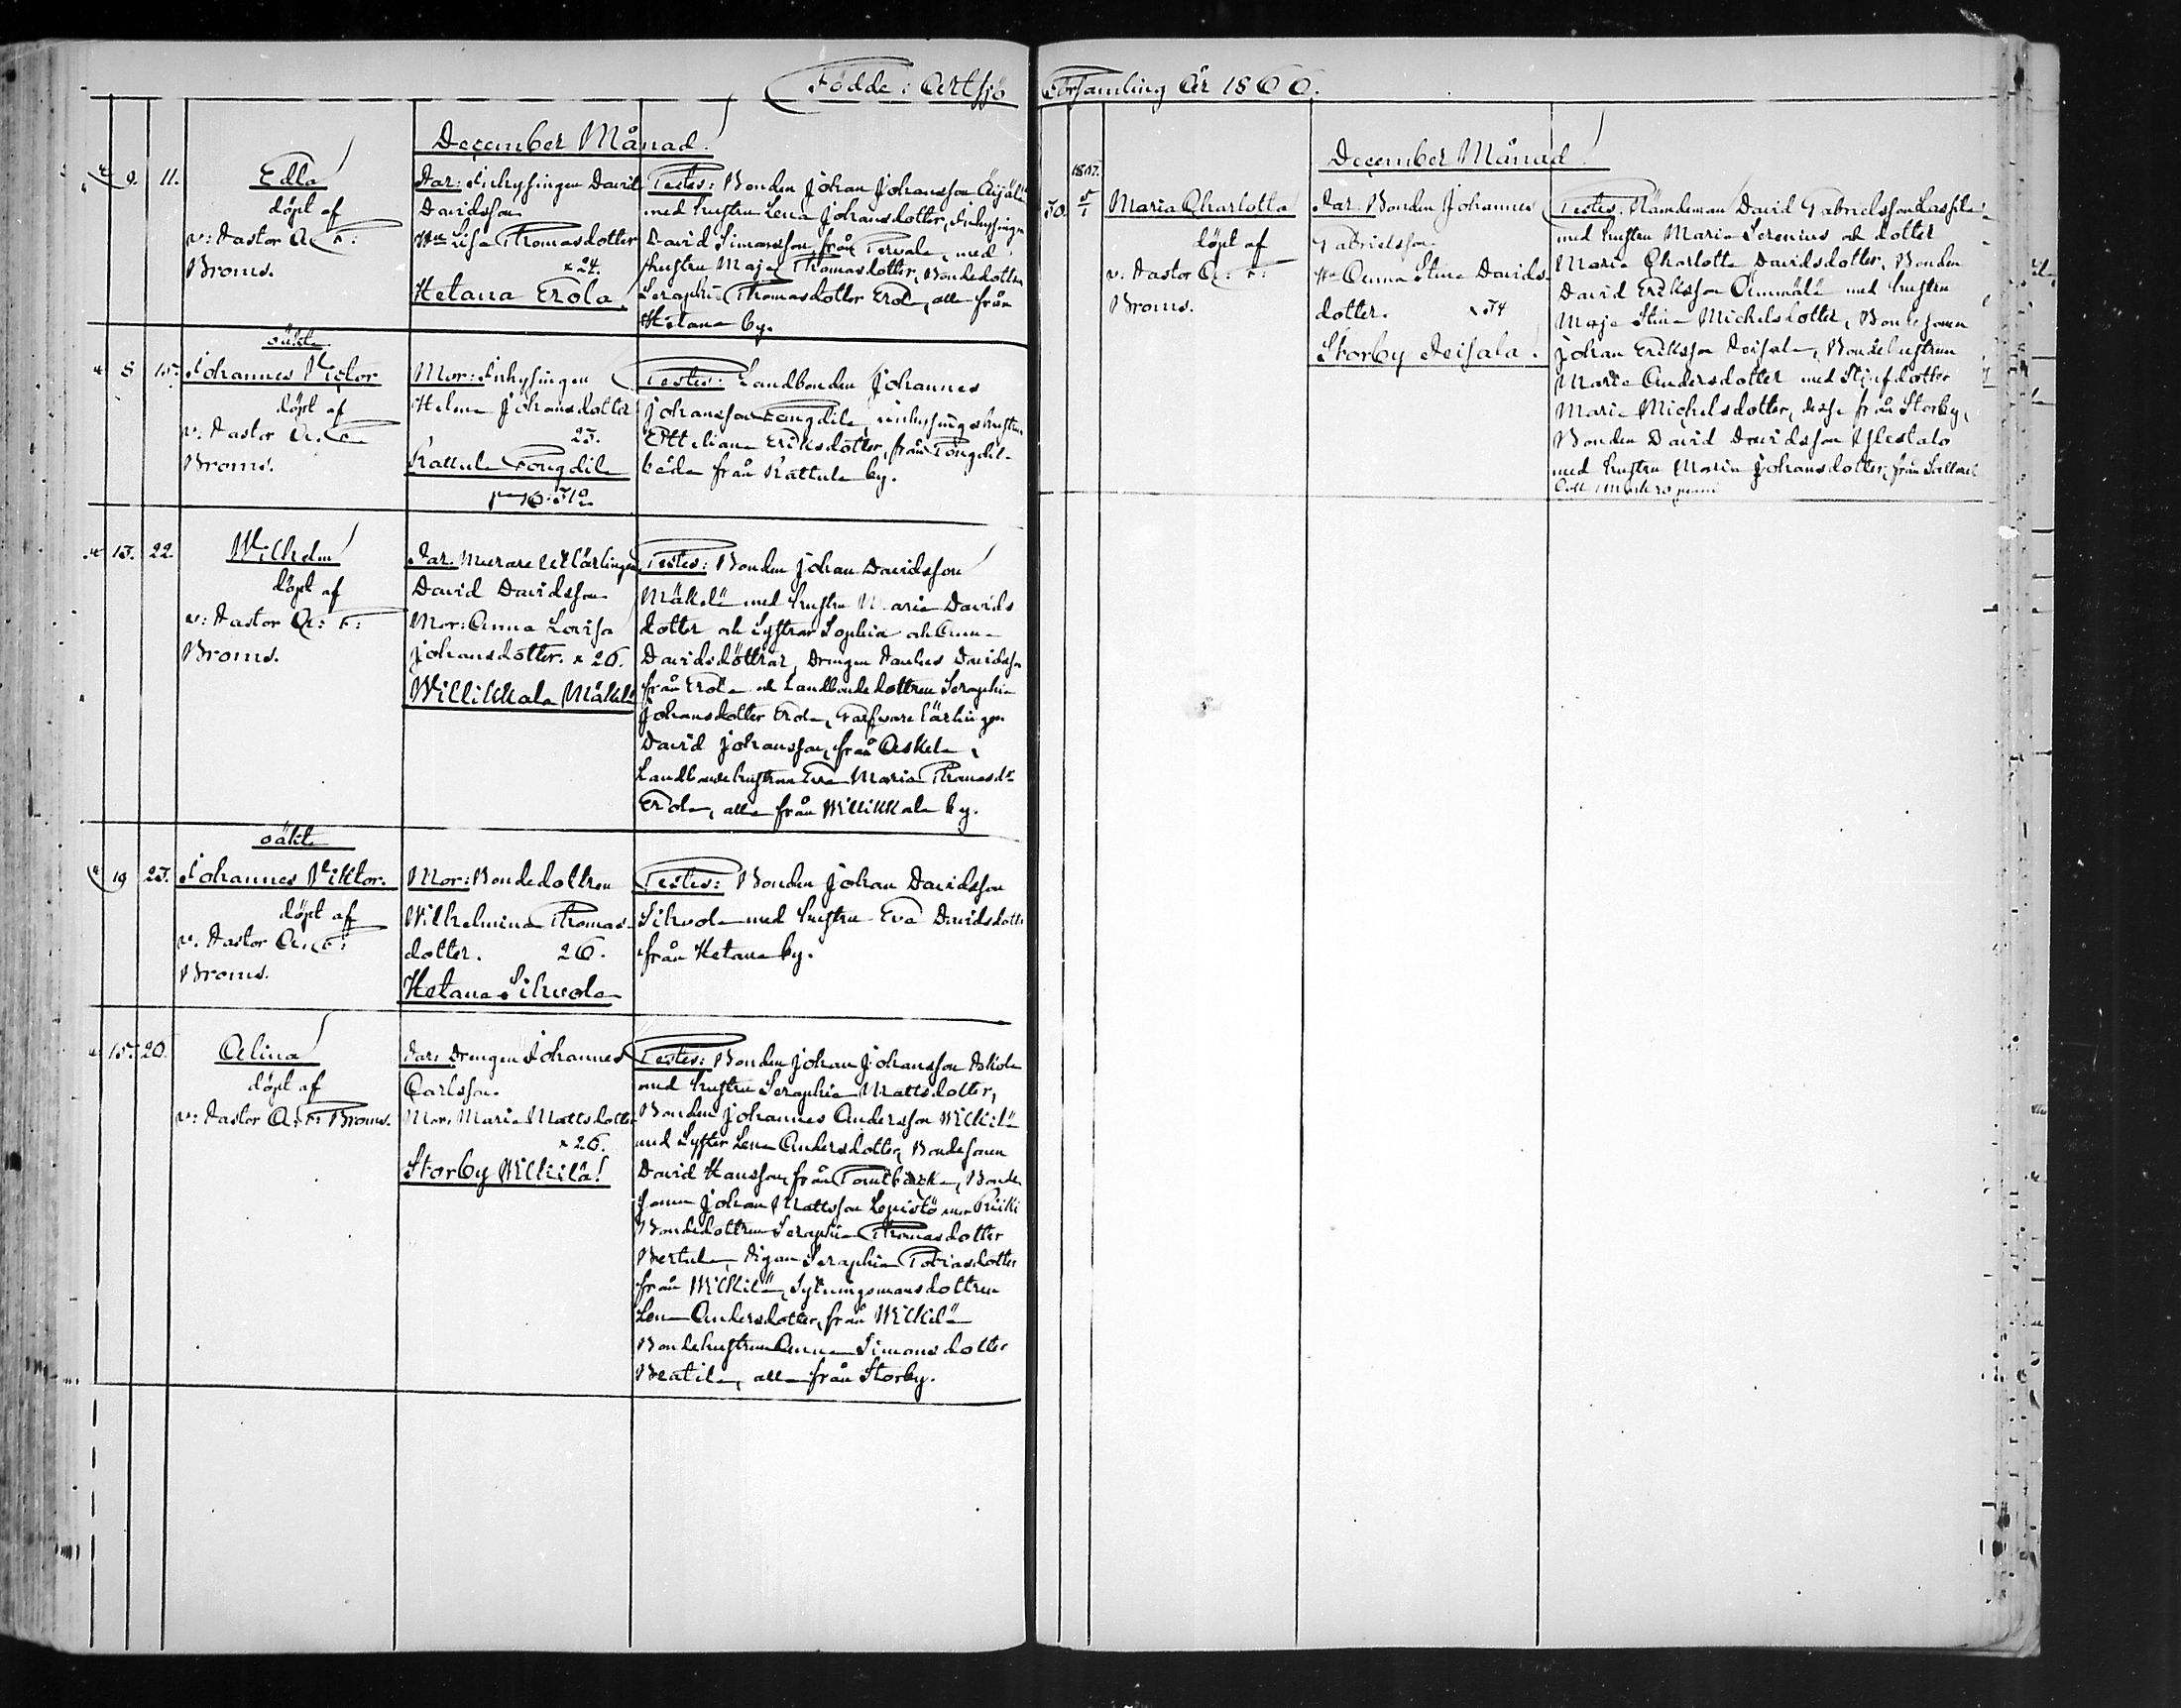 Födde i Artsjö
December Månad.
9. 11. Edla
döpt af
v: Pastor A: F:
Broms.
Far: Inhysingen David
Davidsson
Hu Lisa Thomasdotter
x 24.
Hetana Erola
Testes: Bonden Johan Johansson Äijälä
med hustru Lena Johansdotter, Inhysingen
David Simonsson från Tervala, med
hustru Maja Thomasdotter, Bondedottren
Seraphi Thomasdotter Erola, alla från
Hetana by.
oäkta
8 15. Johannes Victor
döpt af
v. Pastor A. F.
Broms.
Mor: Inhysingen
Helena Johansdotter
23.
Kattula Tongdila
Testes: Landbonden Johannes
Johansson Tongdila, inhysingshustrun
Ottiliana Eriksdotter, från Tongdil-
båda från Kattula by.
13. 22. Wilhelm
döpt af
v: Pastor A: F:
Broms.
Far. Murare Lärlingen
David Davidsson
Mor: Anna Lovisa
Johansdotter. x 26.
Willikkala Mäkelä
Testes: Bonden Johan Davidsson
Mäkelä med hustru Maria Davids
dotter och Systrar Sophia och Anna
Davidsdöttrar, Drengen Paulus Davidsson
från Erola och Landbondedottren Seraphia
Johansdotter Erola, Garfvare lärlingen
David Johansson, från Askela,
Landbondehustrun Eva Maria Thomasdr
Erola, alla från Willikkala by.
oäkta
19 23. Johannes Viktor.
döpt af
v. Pastor A. F:
Broms.
Mor: Bondedottren
Wilhelmina Thomas-
dotter. 26.
Hetana Sihvola
Testes: Bonden Johan Davidsson
Sihvola med hustru Eva Davidsdotter
från Hetana by.
15. 20. Alina
döpt af
v: Pastor A: F: Broms.
Far: Drengen Johannes
Carlsson.
Mor. Maria Mattsdotter
x 26.
Storby Wilkilä
Testes: Bonden Johan Johansson Askola
med hustru Seraphia Mattsdotter,
Bonden Johannes Andersson Wilkilä
med Syster Lena Andersdotter, Bondesonen
David Hansson från Tomtbacka, Bonde
sonen Johan Mattsson Lepistö
Bondedottren Seraphia Thomasdotter
Bertula, Pigan Seraphia Tobiasdotter
från Wilkilä, Sytningsmansdottren
Lena Andersdotter, från Wilkilä
Bondehustrun Anna Simonsdotter
Beatila, alla från Storby.
Församling År 1866.
December Månad
1867.
30. 5/1 Maria Charlotta
döpt af
v. Pastor A: F:
Broms.
Far. Bonden Johannes
Gabrielsson
Hu Anna Stina Davids-
dotter. x 34
Storby Peisala.
Testes. Nämdeman David Gabrielsson Lassila
med hustru Maria Serenius och dotter
Maria Charlotta Davidsdotter, Bonden
David Eriksson Ammälä med hustru
Maja Stina Michelsdotter, Bondesonen
Johan Eriksson Peisala, Bondehustrun
Maria Andersdotter med Stjufdotter
Maria Michelsdotter, desse från Storby,
Bonden David Davidsson Ylestalo
med hustru Maria Johansdotter, från